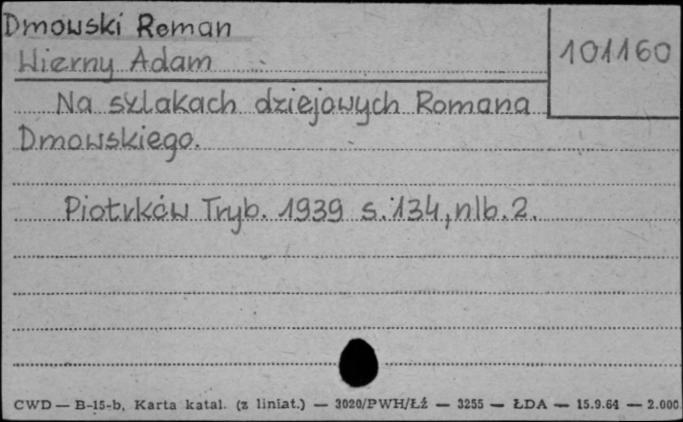 Dmowski Roman
Wierny Adam
101160
Na szlakach dziejowych Romana
Dmowskiego.
Piotrków Tryb. 1939 s. 134, nlb. 2.
CWD — B-15-b, Karta katal. (z liniat.) — 3020/PWH/Łź — 3255 — ŁDA — 15.9.64 — 2.000